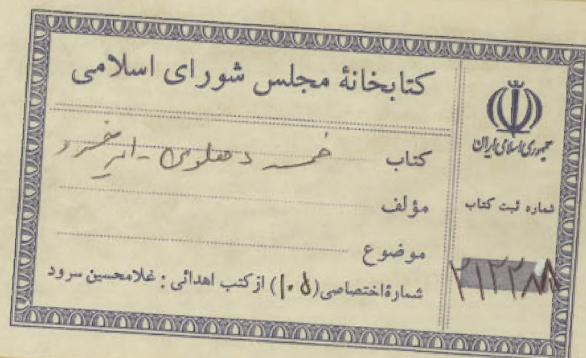 کتابخانهٔ مجلس شورای اسلامی
کتاب خمسه دهلوی - امیر خسرو
مؤلف
موضوع
شمارهٔ اختصاصی (۱۰۵) از کتب اهدائی : غلامحسین سرود
جمهوری اسلامی ایران
شماره ثبت کتاب
۲۱۲۲۸۸